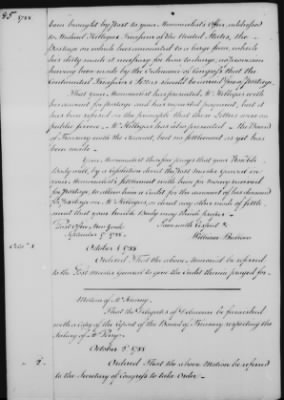 85 1788
been brought by Post to your Memorialist's Office, addressed
to Michael Hillegas Treasurer of the United States, the
Postage on which has amounted to a large sum, which
his duty made it necessary for him to charge, no provision
having been made by the Ordinances of Congress that the
Continental Treasurer's Letters should be exempt from Postage
That your Memorialist has presented Mr Hillegas with
his account for postage and has requested payment, but it
has been refused on the principle that these Letters were on
public service. Mr Hillegas has also presented the Board
of Treasury with the Account, but no settlement as yet has
been made.
Your Memorialist therefore prays that your Honorable
Body will, by a resolution direct the Post Master General on
your Memorialist's settlement with him for money received
for Postage, to allow him a Credit for the amount of his demand
for Postage on Mr Hillegas, or direct any other mode of settle-
ment that your honorable Body may think proper.
Post Office New York
September 5th 1788.
I am with respect &c
William Bedlow
October 1. 1788
Ordered That the above Memorial be referred
to the Post Master General to give the Credit therein prayed for.
Motion of Mr
That the Delegates of Delaware be furnished
with a Copy of the report of the Board of Treasury respecting the
October 2d 1788
Ordered That the above Motion be referred
to the Secretary of Congress to take Order.